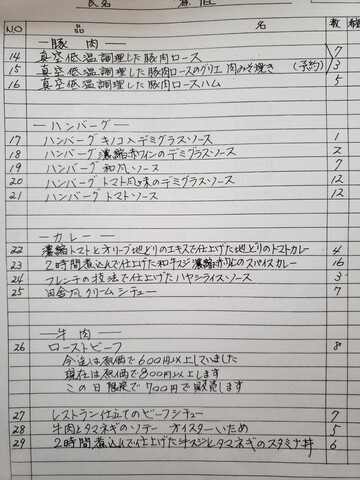 氏名
NO 品 名 数
—豚 肉—
14 真空低温調理した豚肉ロース 7
15 真空低温調理した豚肉ロースのグリエ 肉みそ焼き (予約) 3
16 真空低温調理した豚肉ロースハム 5
—ハンバーグ—
17 ハンバーグ キノコ入デミグラスソース 1
18 ハンバーグ 濃縮赤ワインのデミグラスソース 2
19 ハンバーグ 和風ソース 7
20 ハンバーグ トマト風味のデミグラスソース 12
21 ハンバーグ トマトソース 12
—カレー—
22 濃縮トマトとオリーブ地どりのエキスで仕上げた地どりのトマトカレー 4
23 2時間煮込んで仕上げた和牛スジ 濃縮赤ワインのスパイスカレー 16
24 フレンチの技法で仕上げたハヤシライスソース 3
25 田舎風クリームシチュー 7
—牛 肉—
26 ローストビーフ 8
今迄は原価で600円以上していました
現在は原価で800円以上します
この日限定で700円で販売します
27 レストラン仕立てのビーフシチュー 7
28 牛肉とタマネギのソテー オイスターいため 5
29 2時間煮込んで仕上げた牛スジとタマネギのスタミナ丼 6